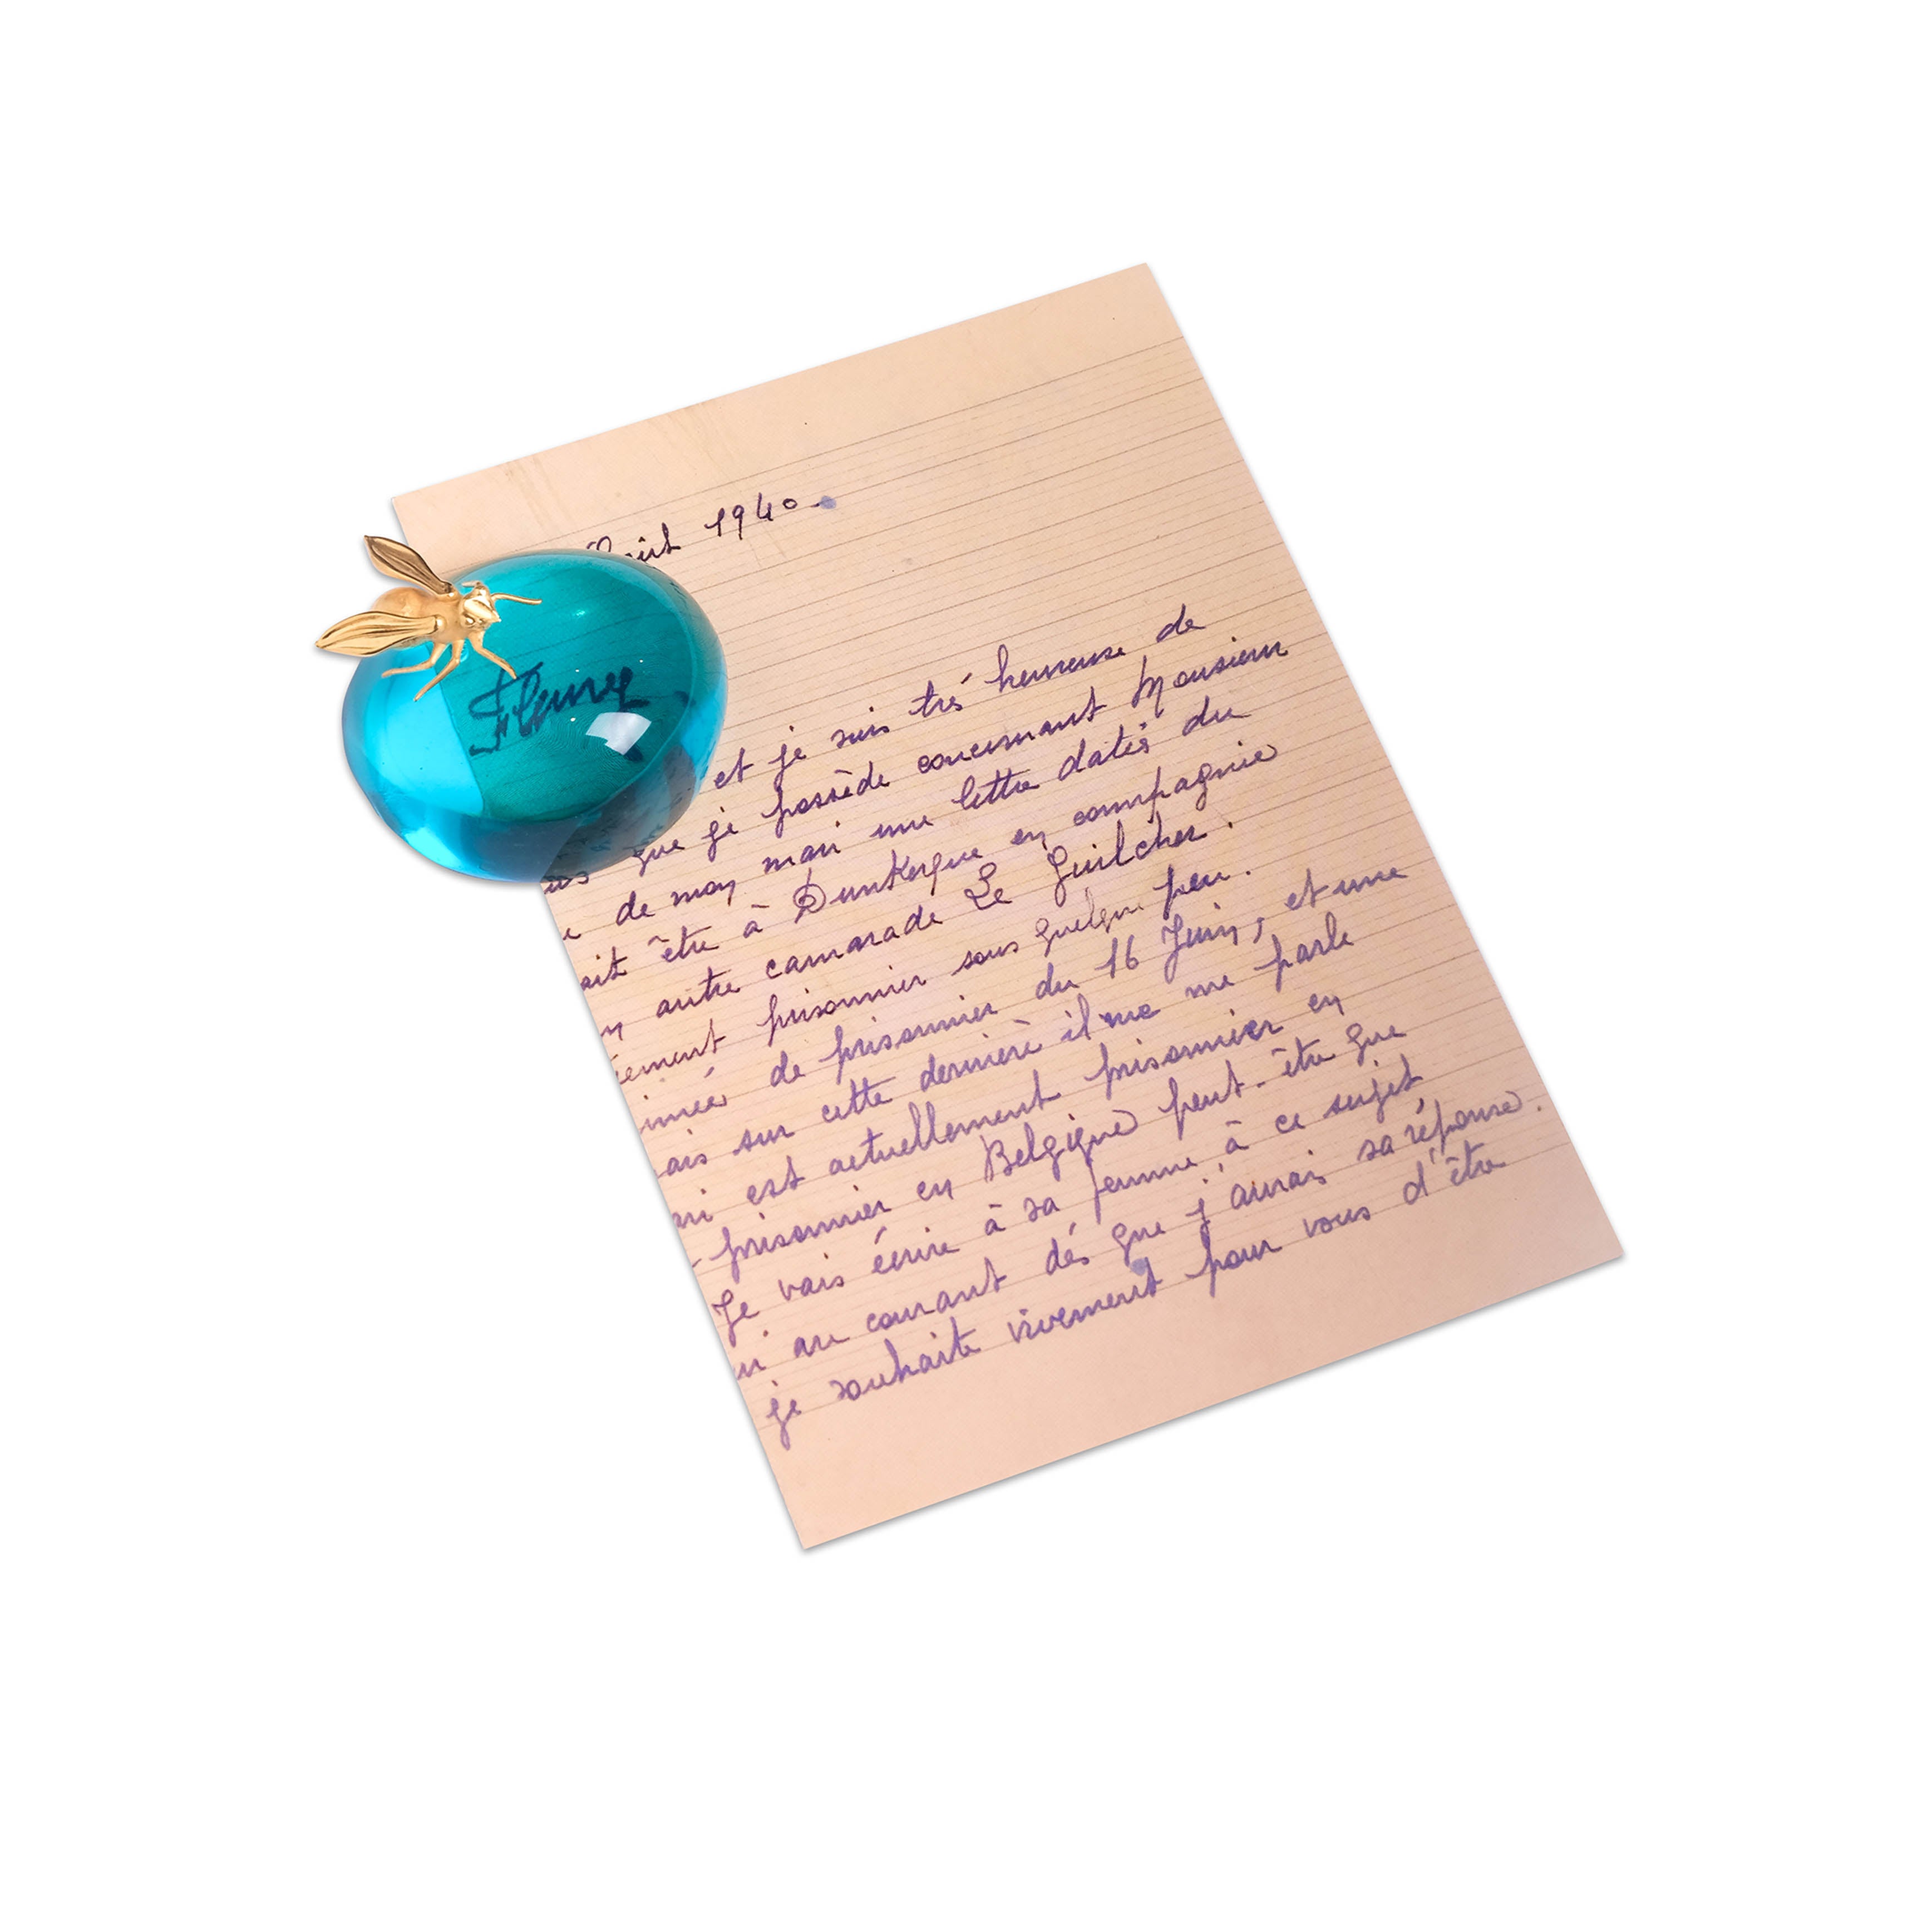 Août 1940.
Fleury
et je suis trés heureuse de
que je possède concernant Monsieur
de mon mari une lettre datés du
ait être à Dunkerque en compagnie
n autre camarade Le Guilcher.
ement prisonnier sous quelque peu.
imeé de prisonnier du 16 Juin, et une
ais sur cette dernière il me me parle
ri est actuellement prisonnier en
prisonnier en Belgique peut-être que
Je vais écrire à sa femme à ce sujet
au courant dés que j'aurais sa réponse.
je souhaite vivement pour vous d'être